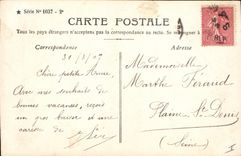 ★ Série N° 1037 - 2e
CARTE POSTALE
Tous les pays étrangers n'acceptent pas la correspondance au recto. Se renseigner à
Correspondance
Adresse
31/8/07
Chère petite Anne,
En attendant de
bonnes vacances, reçois
un gros baiser et une
caresse de
Mademoiselle
Marthe Féraud
Plaine St Denis
(Seine)